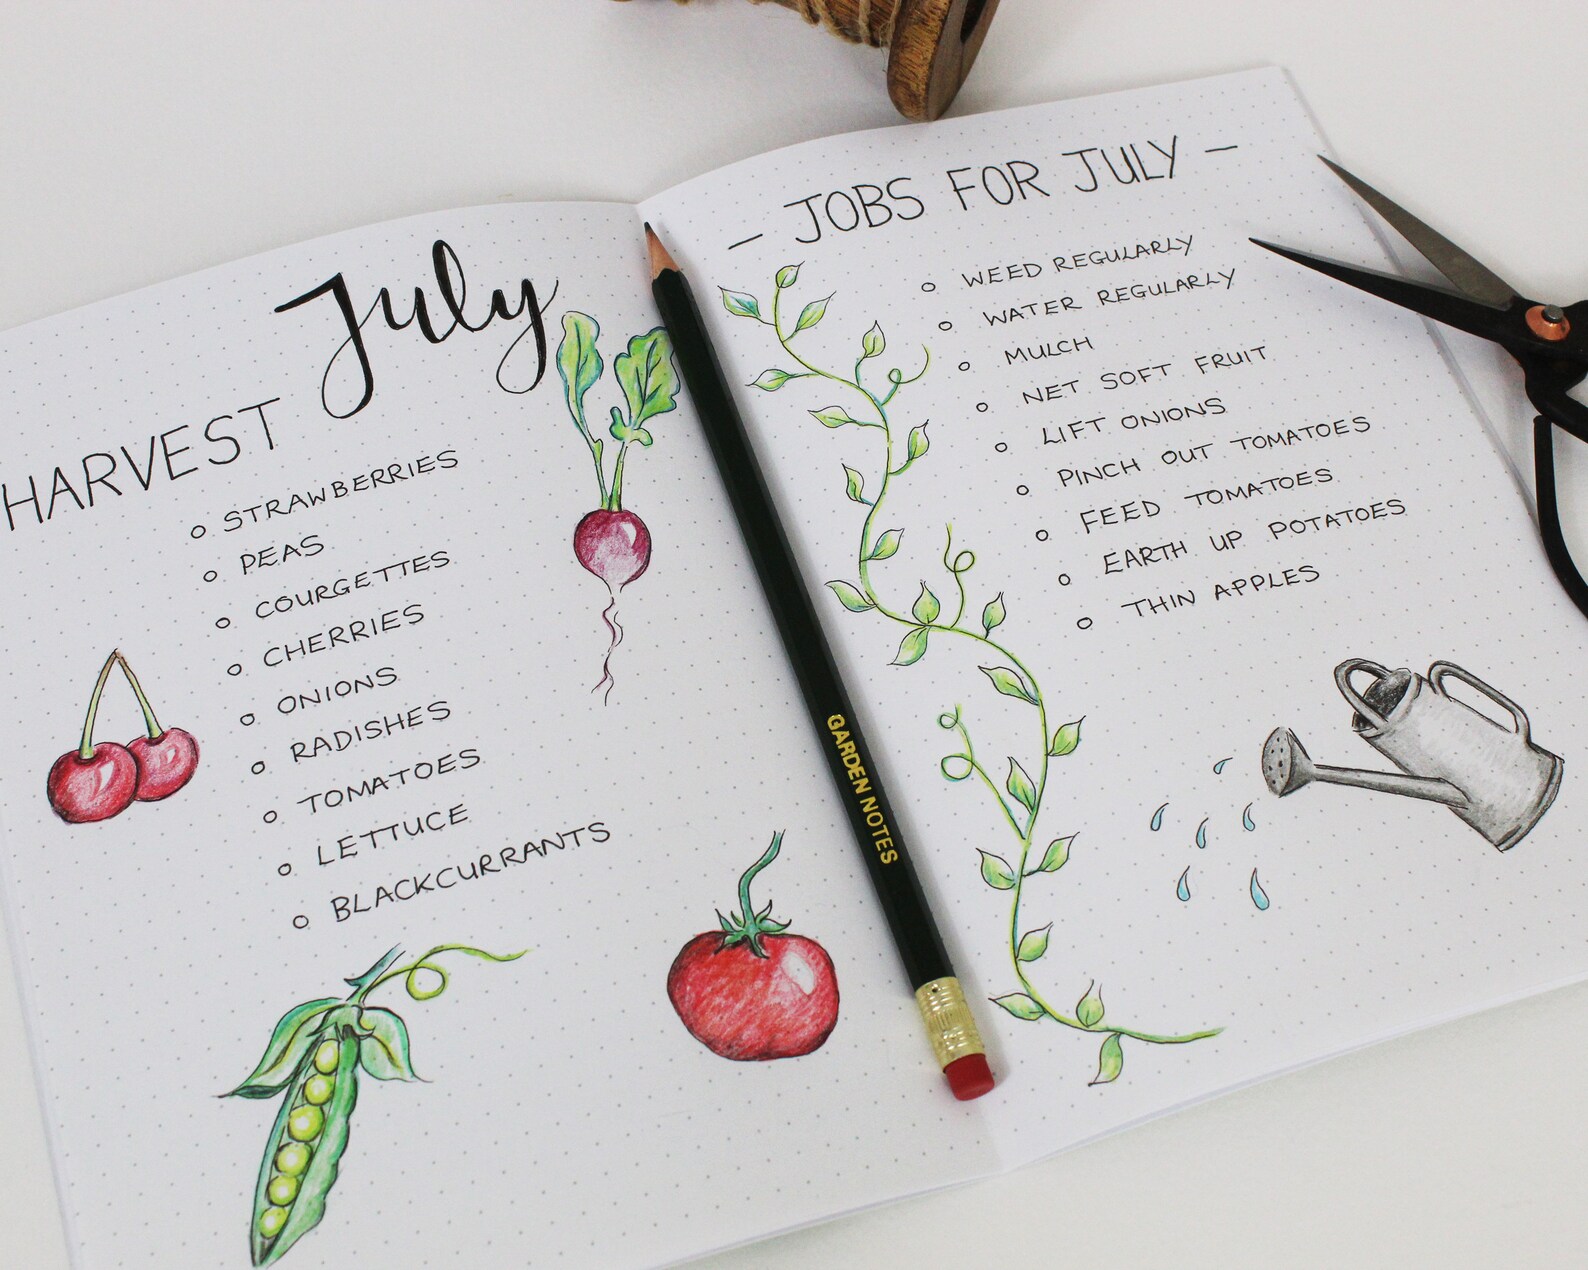 July
HARVEST
STRAWBERRIES
PEAS
COURGETTES
CHERRIES
ONIONS
RADISHES
TOMATOES
LETTUCE
BLACKCURRANTS
GARDEN NOTES
- JOBS FOR JULY -
WEED REGULARLY
WATER REGULARLY
MULCH
NET SOFT FRUIT
LIFT ONIONS
PINCH OUT TOMATOES
FEED TOMATOES
EARTH UP POTATOES
THIN APPLES